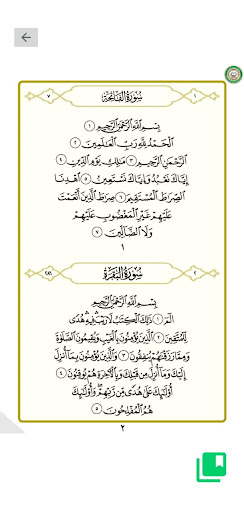 ١ سُورَةُ الفَاتِحَةِ ٧
بِسْمِ اللَّهِ الرَّحْمَٰنِ الرَّحِيمِ ١
الْحَمْدُ لِلَّهِ رَبِّ الْعَالَمِينَ ٢
الرَّحْمَٰنِ الرَّحِيمِ ٣ مَالِكِ يَوْمِ الدِّينِ ٤
إِيَّاكَ نَعْبُدُ وَإِيَّاكَ نَسْتَعِينُ ٥ اهْدِنَا
الصِّرَاطَ الْمُسْتَقِيمَ ٦ صِرَاطَ الَّذِينَ أَنْعَمْتَ
عَلَيْهِمْ غَيْرِ الْمَغْضُوبِ عَلَيْهِمْ
وَلَا الضَّالِّينَ ٧
١
٢ سُورَةُ البَقَرَةِ ٢٨٦
بِسْمِ اللَّهِ الرَّحْمَٰنِ الرَّحِيمِ
الم ١ ذَٰلِكَ الْكِتَابُ لَا رَيْبَ فِيهِ هُدًى
لِّلْمُتَّقِينَ ٢ الَّذِينَ يُؤْمِنُونَ بِالْغَيْبِ وَيُقِيمُونَ الصَّلَاةَ
وَمِمَّا رَزَقْنَاهُمْ يُنفِقُونَ ٣ وَالَّذِينَ يُؤْمِنُونَ بِمَا أُنزِلَ
إِلَيْكَ وَمَا أُنزِلَ مِن قَبْلِكَ وَبِالْآخِرَةِ هُمْ يُوقِنُونَ ٤
أُولَٰئِكَ عَلَىٰ هُدًى مِّن رَّبِّهِمْ وَأُولَٰئِكَ
هُمُ الْمُفْلِحُونَ ٥
٢